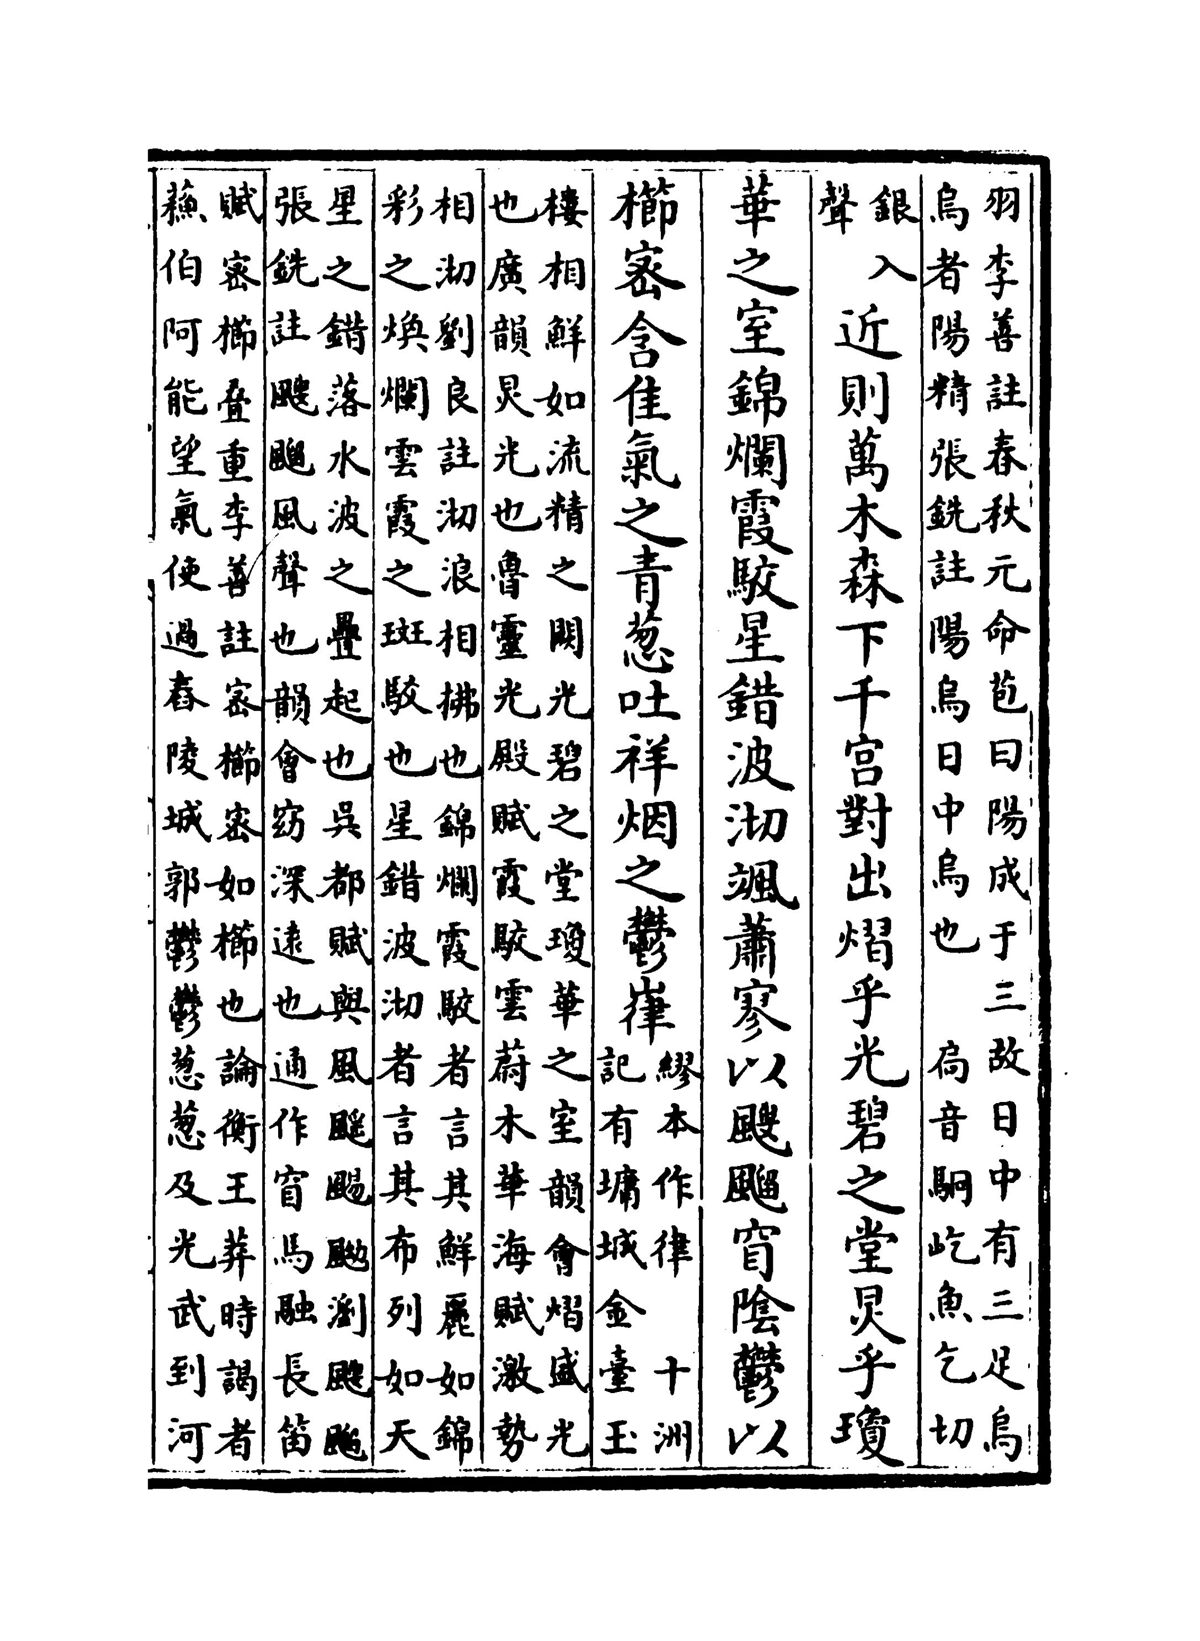 羽李善註春秋元命苞曰陽成于三故日中有三足烏
烏者陽精張銑註陽烏日中烏也　扃音駉屹魚乞切
銀入
聲
近則萬木森下千宮對出熠乎光碧之堂炅乎瓊
華之室錦爛霞駮星錯波沏颯蕭寥以颼飀窅陰鬱以
櫛宻含佳氣之青葱吐祥烟之鬱嵂
繆本作律　十洲
記有墉城金臺玉
樓相鮮如流精之闕光碧之堂瓊華之室韻會熠盛光
也廣韻炅光也魯靈光殿賦霞駮雲蔚木華海賦激勢
相沏劉良註沏浪相拂也錦爛霞駮者言其鮮麗如錦
彩之煥爛雲霞之斑駮也星錯波沏者言其布列如天
星之錯落水波之疊起也吳都賦與風飖颺䬀瀏颼飀
張銑註颼飀風聲也韻會窈深遠也通作窅馬融長笛
賦宻櫛叠重李善註宻櫛宻如櫛也論衡王莽時謁者
蘓伯阿能望氣使過舂陵城郭鬱鬱葱葱及光武到河